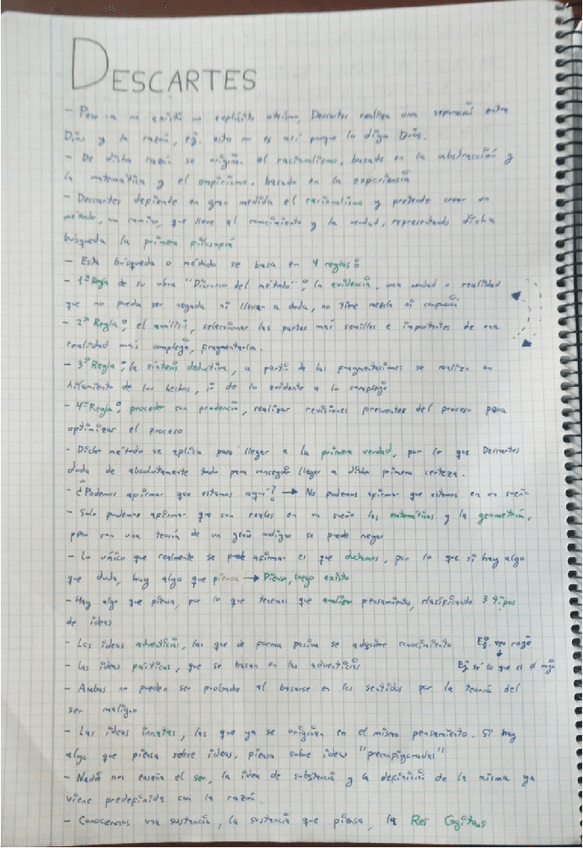 DESCARTES
- Pese a no existir un explícito ateísmo, Descartes realiza una separación entre
Dios y la razón, ej. esto no es así porque lo diga Dios.
- De dicha razón se origina el racionalismo, basado en la abstracción y
la matemática y el empirismo, basado en la experiencia
- Descartes defiende en gran medida el racionalismo y pretende crear un
método, un camino, que lleve al conocimiento y la verdad, representando dicha
búsqueda la primera filosofía
- Esta búsqueda o método se basa en 4 reglas:
- 1ª Regla de su obra "Discurso del método": la evidencia, una verdad o realidad
que no pueda ser negada ni llevar a duda, no tiene mezcla ni confusión
- 2ª Regla: el análisis, seleccionar las partes más sencillas e importantes de una
realidad más compleja, fragmentarla.
- 3ª Regla: la síntesis deductiva, a partir de las fragmentaciones se realiza un
hilamiento de los hechos, de lo evidente a lo complejo
- 4ª Regla: proceder con prudencia, realizar revisiones frecuentes del proceso para
optimizar el proceso
- Dicho método se aplica para llegar a la primera verdad, por lo que Descartes
duda de absolutamente todo para conseguir llegar a dicha primera certeza.
- ¿Podemos afirmar que estamos aquí? → No podemos afirmar que estamos en un sueño
- Solo podemos afirmar que son reales en un sueño las matemáticas y la geometría,
pero con una teoría de un genio maligno se puede negar
- Lo único que realmente se puede afirmar es que dudamos, por lo que si hay algo
que duda, hay algo que piensa → Pienso, luego existo
- Hay algo que piensa, por lo que tenemos que analizar pensamiento, clasificando 3 tipos
de ideas
- Las ideas adventicias, las que de forma pasiva se adquiere conocimiento Ej. veo rojo
- Las ideas facticias, que se basan en las adventicias Ej. sé lo que es el rojo
- Ambas no pueden ser probadas al basarse en los sentidos por la teoría del
ser maligno
- Las ideas innatas, las que ya se originan en el mismo pensamiento. Si hay
algo que piensa sobre ideas, piensa sobre ideas "preconfiguradas"
- Nadie nos enseña el ser, la idea de substancia y la definición de la misma ya
viene predefinida con la razón.
- Conocemos una sustancia, la sustancia que piensa, la Res Cogitans